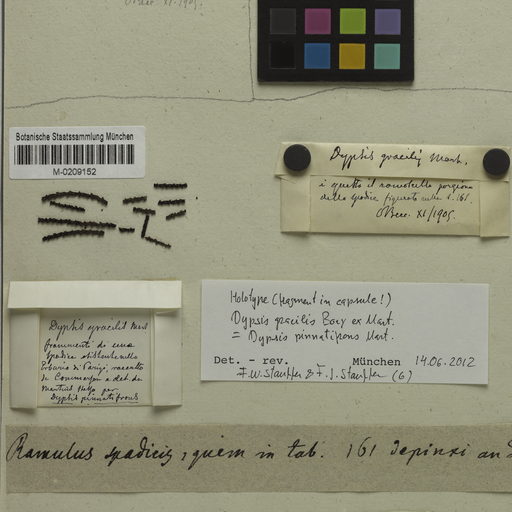 Becc. XI. 1905.
Botanische Staatssammlung München
M-0209152
Dypsis gracilis Mart.
è questo il ramoscello porzione
dello spadice figurato nella t. 161.
OBecc. XI/1905.
Holotype (fragment in capsule!)
Dypsis gracilis Bory ex Mart.
= Dypsis pinnatifrons Mart.
Det. - rev. München 14.06.2012
F.W. Stauffer & F. J. Stauffer (G)
Dypsis gracilis Mart
frammenti di uno
spadice
Erbario di Parigi, raccolto
da Commerson e det. da
Martius
Dypsis pinnatifrons
Ramulus spadicis, quem in tab. 161 depinxi